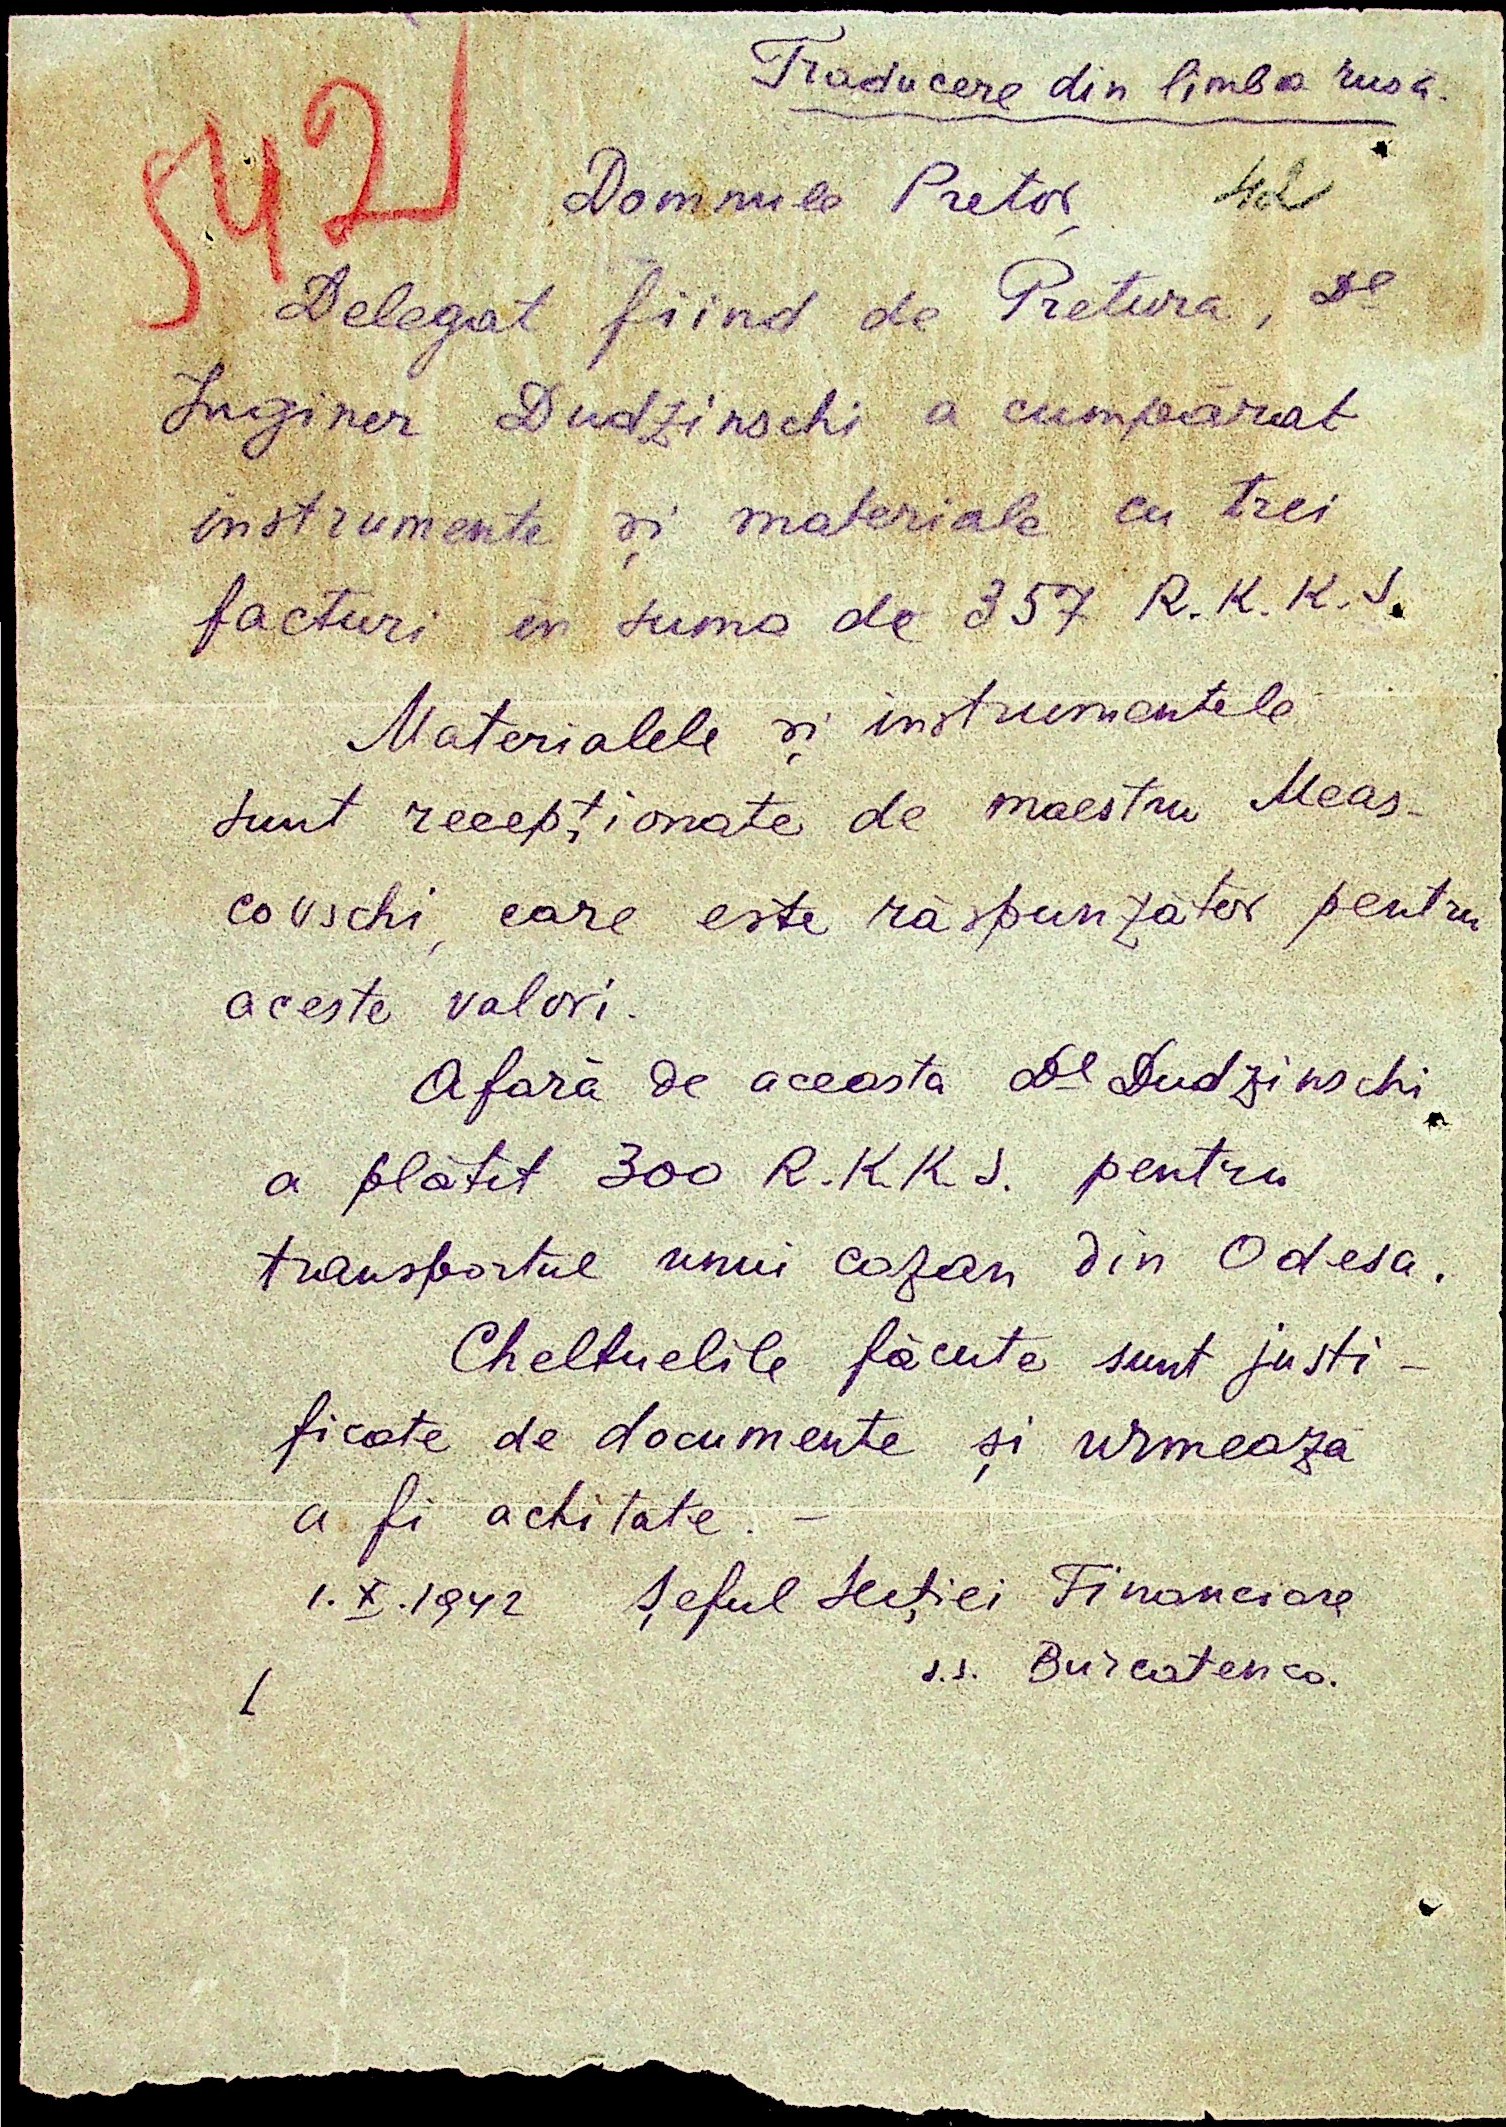 Traducere din limba rusă.
542
Domnule Pretor,
42
Delegat fiind de Pretura, Dl
Inginer Dudzinschi a cumpărat
instrumente și materiale cu trei
facturi în suma de 357 R.K.K.S.
Materialele și instrumentele
sunt recepționate de maestru Meas-
covschi, care este răspunzător pentru
aceste valori.
Afară de aceasta Dl Dudzinschi
a plătit 300 R.K.K.S. pentru
transportul unui cazan din Odesa.
Cheltuelile făcute sunt justi-
ficate de documente și urmează
a fi achitate. -
1.X.1942 Șeful Secției Financiare
s.s. Burcatenco.